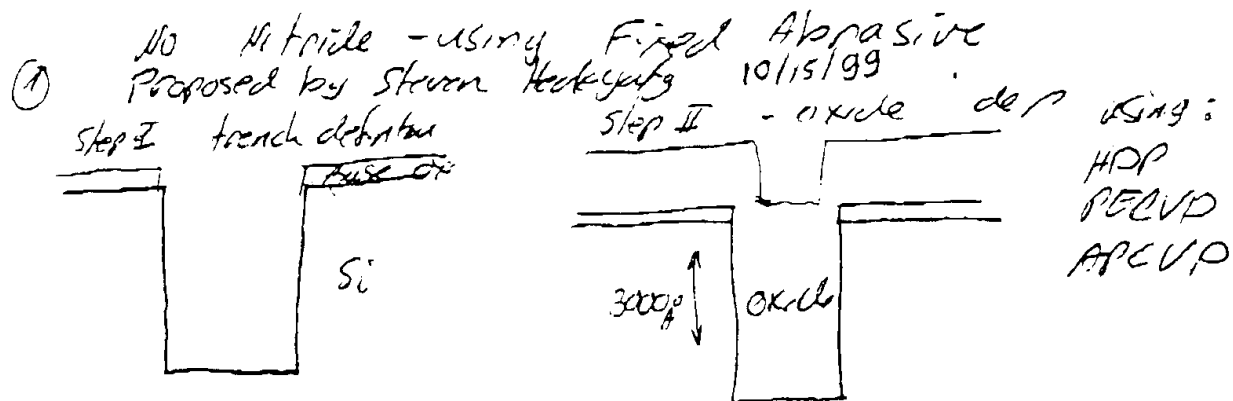 No Nitride - using Fixed Abrasive
① Proposed by Steven 10/15/99.
Step I trench definition
Step II - oxide dep using:
HDP
PECVD
APCVD
ox
Si
3000Å
oxide